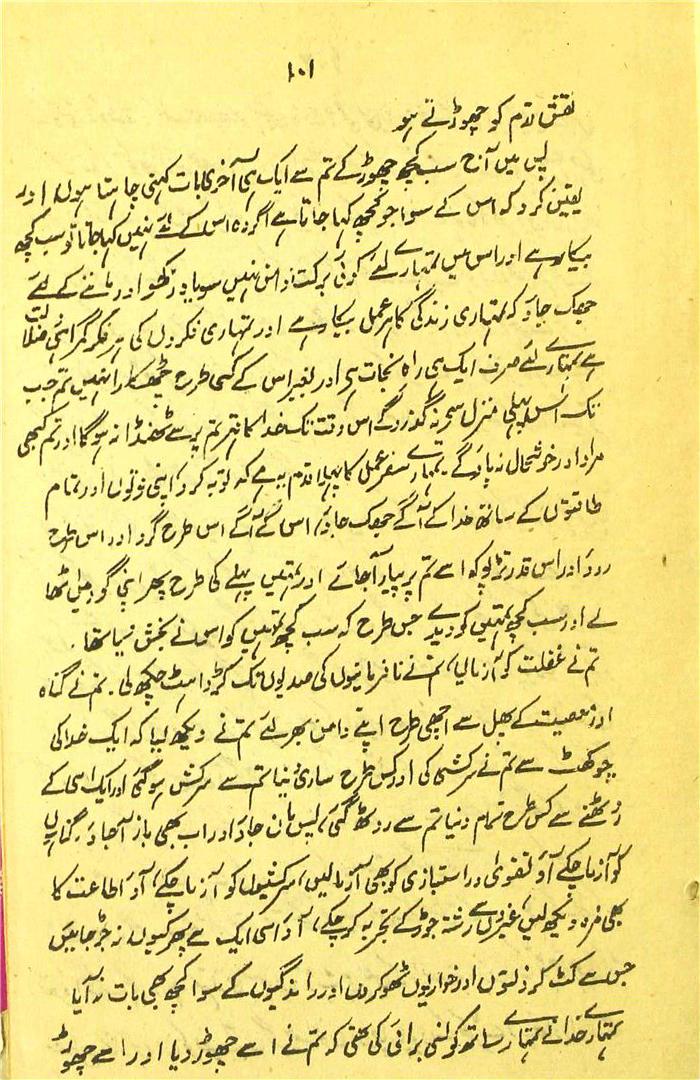 ۱۰۱
نقش قدم کو چھوڑتے ہو
پس میں آج سب کچھ چھوڑ کے تم سے ایک ہی آخری بات کہنی چاہتا ہوں، اور
یقین کرو کہ اس کے سوا جو کچھ کہا جاتا ہے اگر وہ اس کے لئے نہیں کہا جاتا تو سب کچھ
بیکار ہے اور اس میں تمہارے لئے کوئی برکت و امن نہیں سو یاد رکھو اور ماننے کے لئے
جھک جاؤ کہ تمہاری زندگی کا ہر عمل بیکار ہے اور تمہاری فکروں کی ہر فکر گمراہی و ضلالت
ہے تمہارے لئے صرف ایک ہی راہ نجات ہی اور بغیر اس کے کسی طرح چھٹکارا نہیں تم جب
تک اس پہلی منزل سے نہ گذرو گے اس وقت تک خدا کا قہر تم پر سے ٹھنڈا نہ ہوگا اور تم کبھی
مراد اور خوشحال نہ پاؤگے۔ تمہارے سفر عمل کا پہلا قدم یہ ہے کہ توبہ کرو، اپنی قوتوں اور تمام
طاقتوں کے ساتھ خدا کے آگے جھک جاؤ، اس کے آگے اس طرح گرو اور اس طرح
روؤ اور اس قدر تڑپو کہ اسے تم پر پیار آجائے اور تمہیں پہلے کی طرح پھر اپنی گود میں اٹھا
لے اور سب کچھ تمہیں کو دیدے جس طرح کہ سب کچھ تمہیں کو اس نے بخش دیا تھا۔
تم نے غفلت کو آزما لیا، تم نے نافرمانیوں کی صدیوں تک کڑواہٹ چکھ لی۔ تم نے گناہ
اور معصیت کے پھل سے اچھی طرح اپنے دامن بھر لئے تم نے دیکھ لیا کہ ایک خدا کی
چوکھٹ سے تم نے سرکشی کی اور کس طرح ساری دنیا تم سے سرکش ہو گئی اور ایک اسی کے
روٹھنے سے کس طرح تمام دنیا تم سے روٹھ گئی، پس مان جاؤ اور اب بھی باز آجاؤ۔ گناہوں
کو آزما چکے آؤ تقوی و راستبازی کو بھی آزمالیں، سرکشیوں کو آزما چکے، آؤ اطاعت کا
بھی مزہ دیکھ لیں، غیروں سے رشتہ جوڑ کے تجربہ کر چکے، آؤ اسی ایک سے پھر کیوں نہ جڑ جائیں
جس سے کٹ کر ذلتوں اور خواریوں ٹھوکروں اور راندگیوں کے سوا کچھ بھی ہات نہ آیا
تمہارے خدا نے تمہارے ساتھ کونسی برائی کی تھی کہ تم نے اسے چھوڑ دیا اور اسے چھوڑ